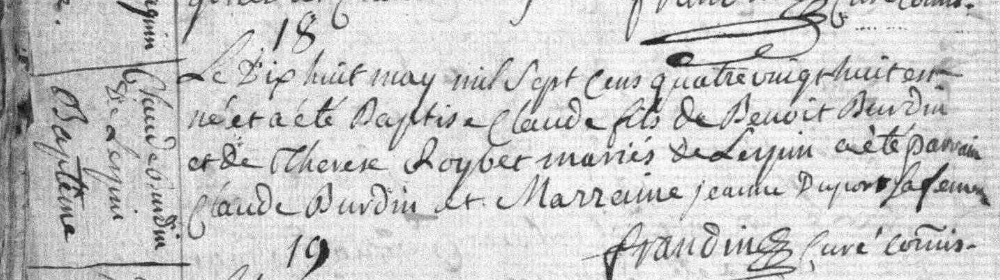 18
Le Dix huit may mil Sept Cens quatre vingt huit est
né et a été Baptise Claude fils de Benoit Burdin
et de Therese Roybet mariés de Leyin a été parrain
Claude Burdin et Marraine jeanne Duport sa femme
frandin Curé comis.
19
Baptême
De Leyin
Claude Burdin